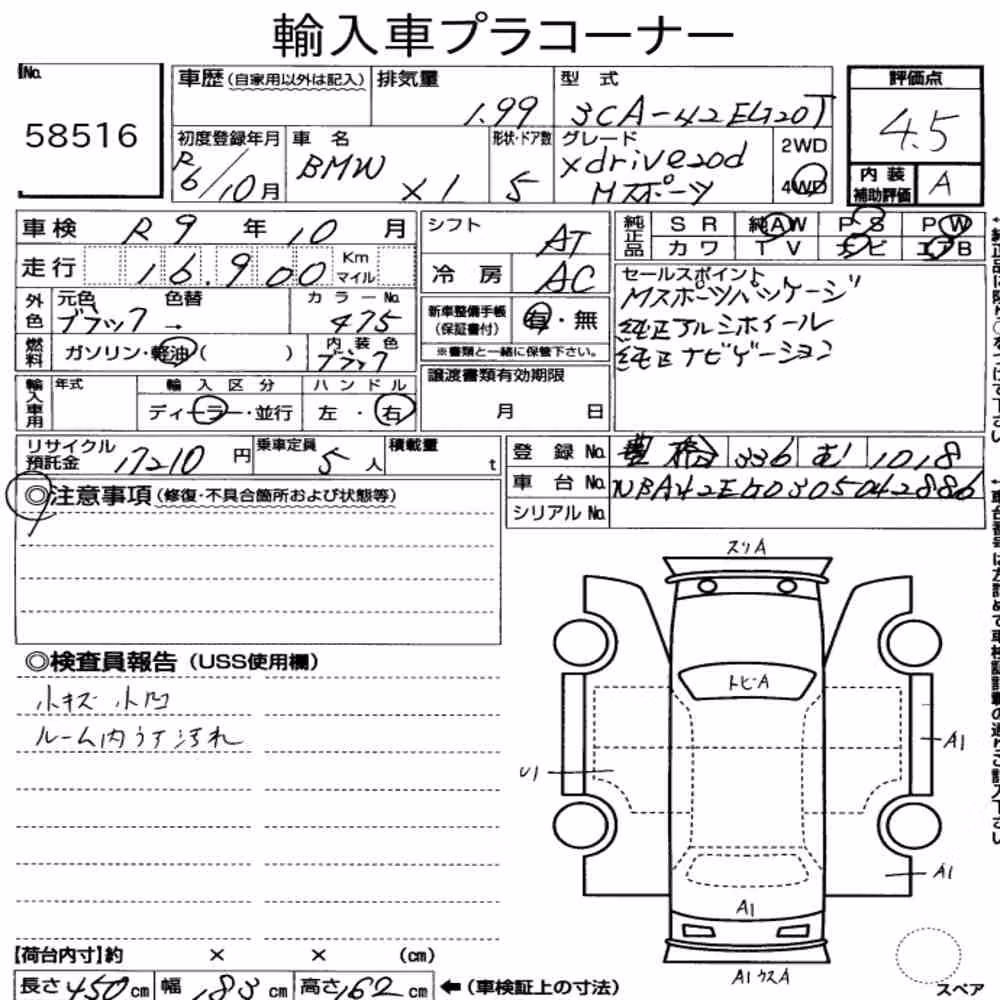 輸入車プラコーナー
No.
58516
車歴（自家用以外は記入）
排気量
1.99
型 式
3CA-42EG20T
評価点
4.5
内装補助評価
A
初度登録年月
R6/10月
車 名
BMW X1
形状・ドア数
5
グレード
xdrive20d
Mスポーツ
2WD
4WD
車検 R9 年 10 月
走行 16,900 Km マイル
外色 元色 色替 カラーNo.
ブラック → 475
燃料 ガソリン・軽油（ ） 内装色 ブラック
輸入車用 年式 輸入区分 ハンドル
ディーラー・並行 左・右
シフト AT
冷 房 AC
新車整備手帳（保証書付） 有・無
※書類と一緒に保管下さい。
譲渡書類有効期限
月 日
純正品 SR 純AW PS PW
カワ TV ナビ エアB
セールスポイント
Mスポーツパッケージ
純正アルミホイール
純正ナビゲーション
リサイクル預託金 17210 円 乗車定員 5 人 積載量 t
登 録 No. 豊橋 336 む 1018
車 台 No.
シリアル No.
◎注意事項（修復・不具合箇所および状態等）
◎検査員報告（USS使用欄）
小キズ 小凹
ルーム内うす汚れ
スリA
トビA
A1
U1
A1
A1
A1 ウスA
【荷台内寸】約 × × （cm）
長さ 450 cm 幅 183 cm 高さ 162 cm ←（車検証上の寸法）
スペア